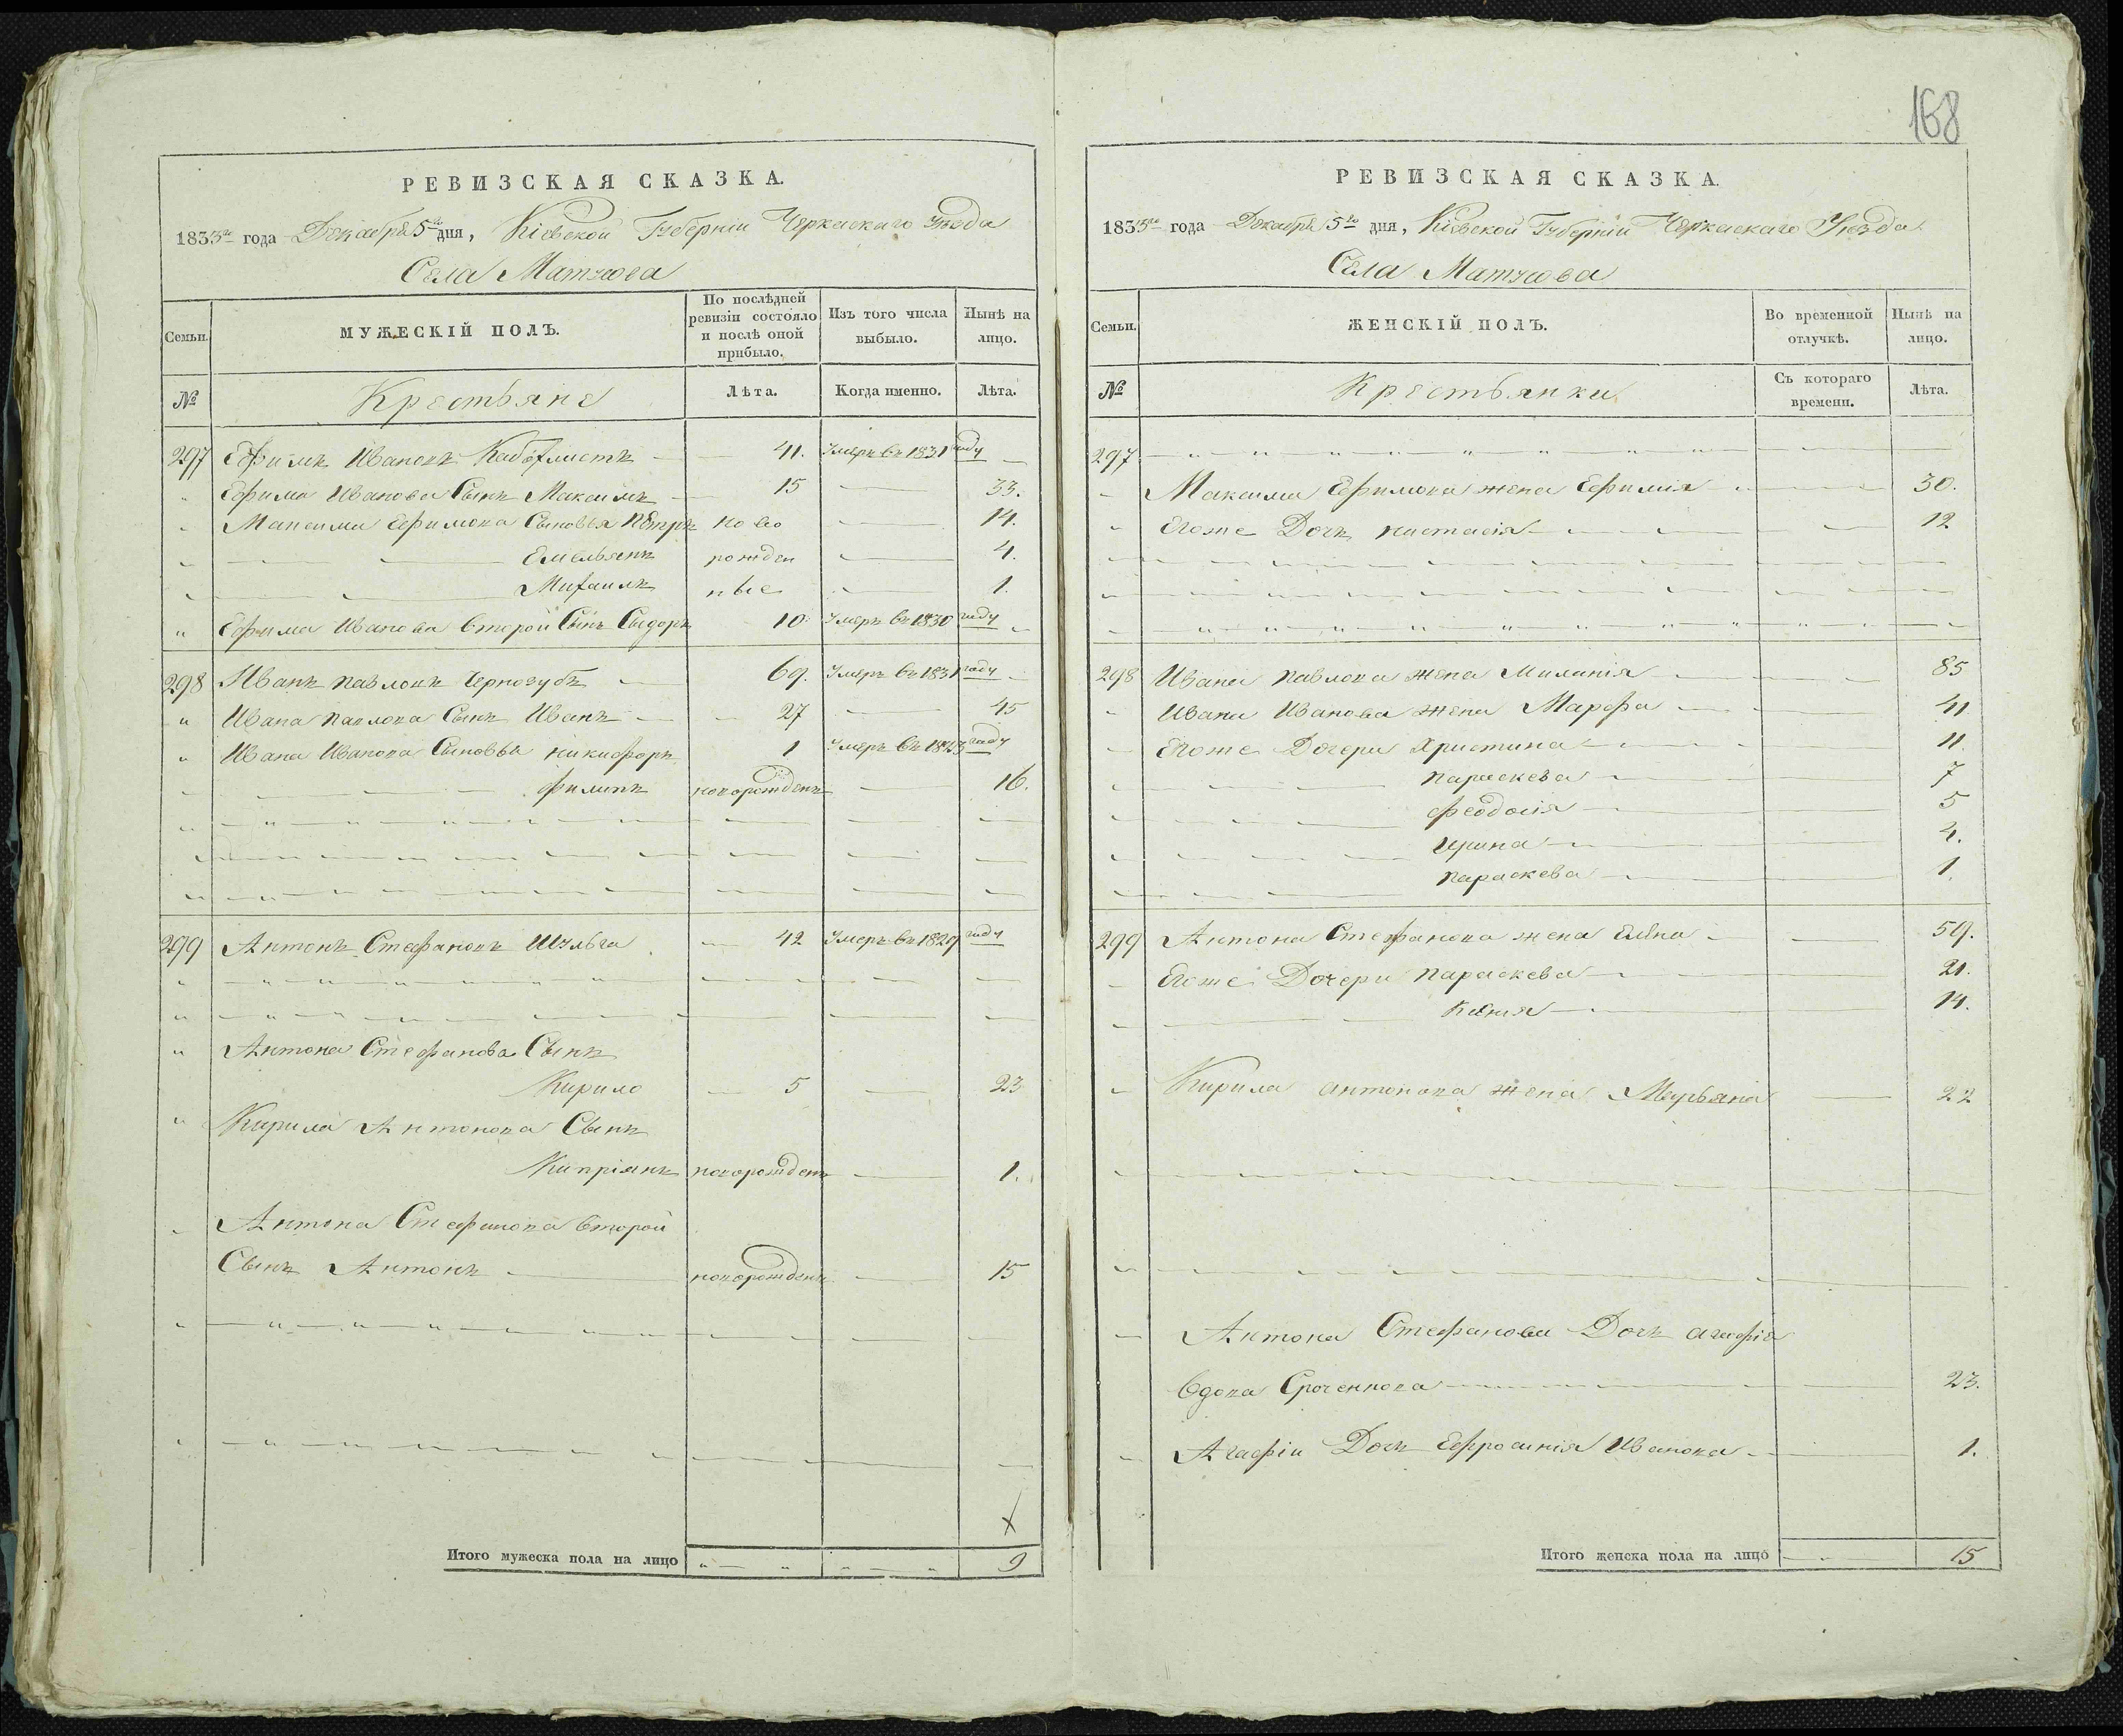 168
РЕВИЗСКАЯ СКАЗКА.
1835го года Декабря 5го дня, Кіевской Губерніи Черкаскаго Уѣзда
Села Матусова
Семьи. МУЖЕСКІЙ ПОЛЪ. По послѣдней ревизіи состояло и послѣ оной прибыло. Изъ того числа выбыло. Нынѣ на лицо.
№ Крестьяне Лѣта. Когда именно. Лѣта.
297 Ефимъ Ивановъ 41. Умеръ въ 1831 году
Ефима Иванова Сынъ Максимъ 15 33.
Максима Ефимова Сыновья Петръ ново 14.
Емельянъ рожден 4.
Михаилъ ные 1.
Ефима Иванова второй Сынъ Сидоръ 10 Умеръ въ 1830 году
298 Иванъ Павловъ Чернозубъ 69. Умеръ въ 1831 году
Ивана Павлова Сынъ Иванъ 27 45
Ивана Иванова Сыновья Никифоръ 1 Умеръ въ году
Филипъ новорожденъ 16.
299 Антонъ Стефановъ Шульга 42 Умеръ въ 1829 году
Антона Стефанова Сынъ
Кирило 5 23
Кирила Антонова Сынъ
Кипріянъ новорожденъ 1.
Антона Стефанова второй
Сынъ Антонъ новорожденъ 15
Х
Итого мужеска пола на лицо 9
РЕВИЗСКАЯ СКАЗКА.
1835го года Декабря 5го дня, Кіевской Губерніи Черкаскаго Уѣзда
Села Матусова
Семьи. ЖЕНСКІЙ ПОЛЪ. Во временной отлучкѣ. Нынѣ на лицо.
№ Крестьянки Съ котораго времени. Лѣта.
297
Максима Ефимова жена Ефимія 30.
Егоже Дочь Настасія 12
298 Ивана Павлова жена Миланія 85
Ивана Иванова жена Марфа 41
Егоже Дочери Христина 11.
Параскева 7
Феодосія 5
Ирина 4.
Параскева 1.
299 Антона Стефанова жена Елена 59.
Егоже Дочери Параскева 21.
Ксенія 14.
Кирила Антонова жена Марьяна 22
Антона Стефанова Дочь Агафія
вдова 23.
Агафіи Дочь Ефросинія Иванова 1.
Итого женска пола на лицо 15